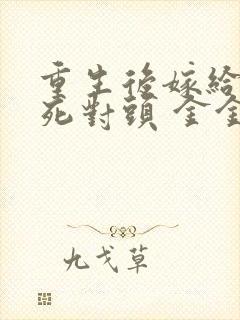 重生後嫁給
死對頭 金金
九戈草